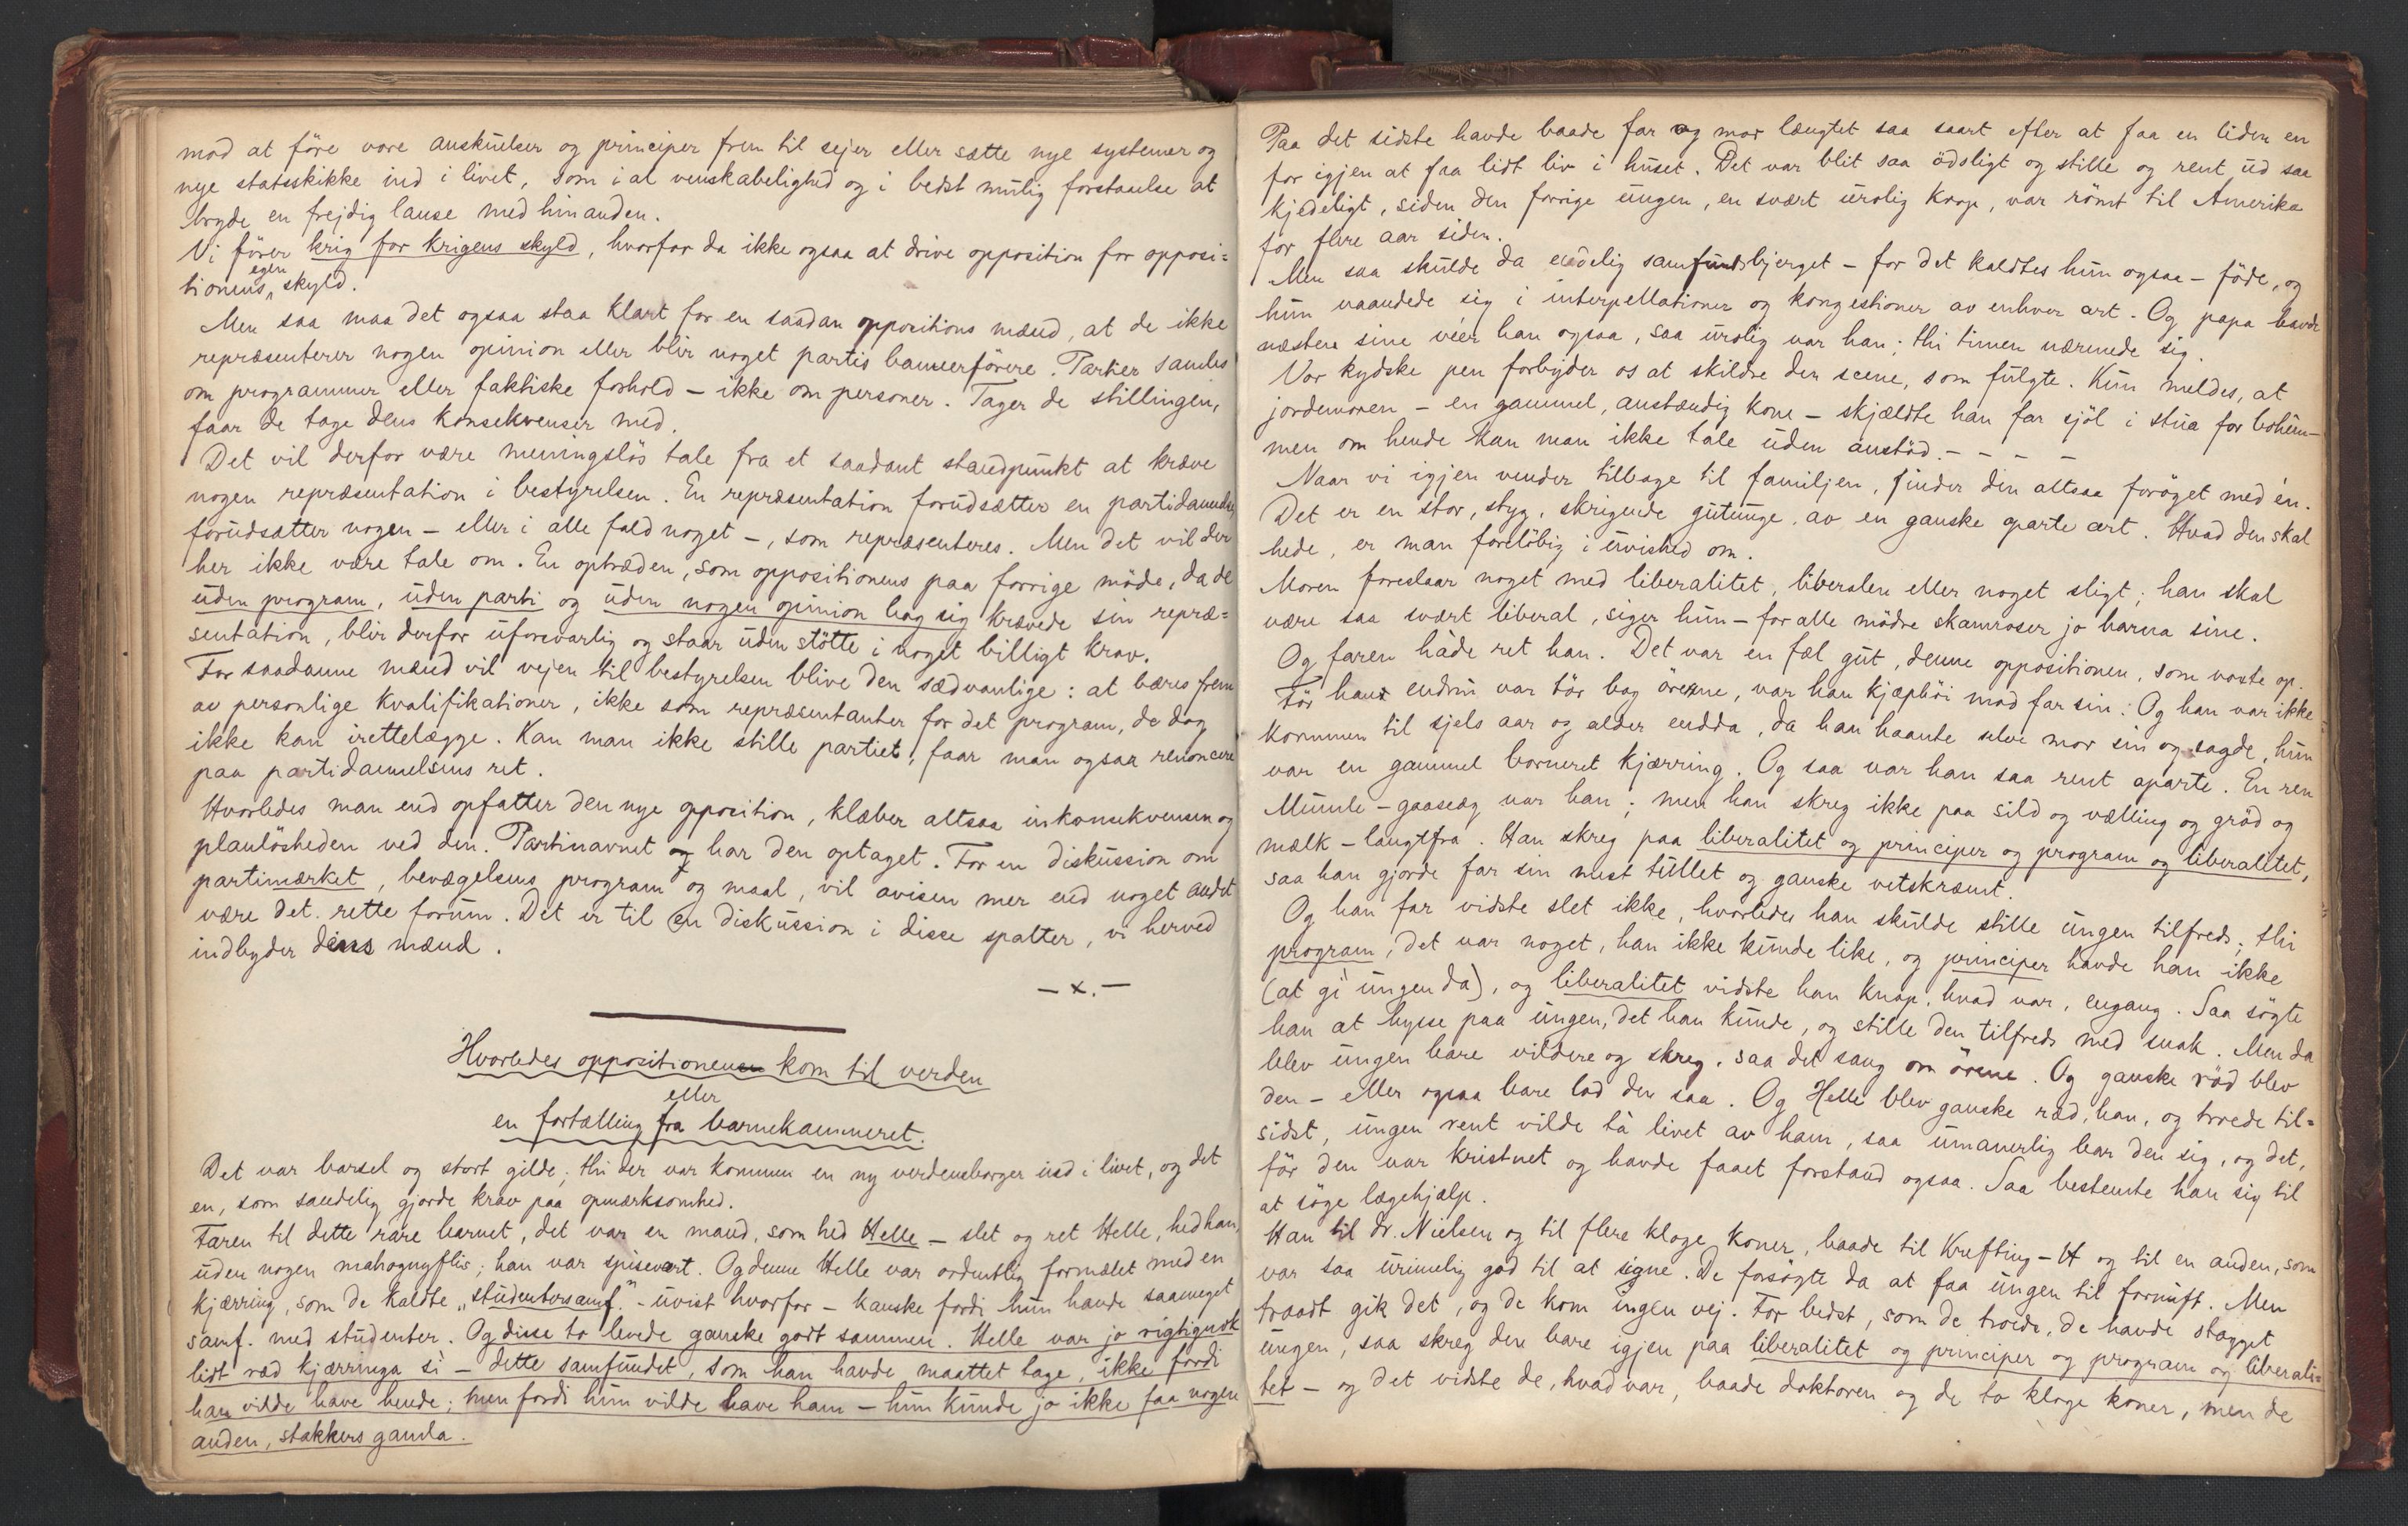 mod at före vore anskuelser og principer frem til sejer eller sætte nye systemer og
nye statsskikke ind i livet, som i al venskabelighed og i bedst mulig forstaaelse at
bryde en frejdig lanse med hinanden.
Vi förer krig for krigens skyld, hvorfor da ikke ogsaa at drive opposition for opposi=
tionens egen skyld.
Men saa maa det ogsaa staa klart for en saadan oppositions mænd, at de ikke
repræsenterer nogen opinion eller blir noget partis bannerförere. Partier samles
om programmer eller faktiske forhold – ikke om personer. Tager de stillingen,
faar de tage dens konsekvenser med.
Det vil derfor være meningslös tale fra et saadant standpunkt at kræve
nogen repræsentation i bestyrelsen. En repræsentation forudsætter en partidannelse,
forudsætter nogen – eller i alle fald noget –, som repræsenteres. Men det vil der
her ikke være tale om. En optræden, som oppositionens paa forrige möde, da de
uden program, uden parti og uden nogen opinion bag sig krævede sin repræ=
sentation, blir derfor uforsvarlig og staar uden stötte i noget billigt krav.
For saadanne mænd vil vejen til bestyrelsen blive den sædvanlige: at bæres frem
av personlige kvalifikationer, ikke som repræsentanter for det program, de dog
ikke kan irettelægge. Kan man ikke stille partiet, faar man ogsaa renoncere
paa partidannelsens ret.
Hvorledes man end opfatter den nye opposition, klæber altsaa inkonsekvensen og
planlösheden ved den. Partinavnet har den optaget. For en diskussion om
partimærket, bevægelsens program og maal, vil avisen mer end noget andet
være det rette forum. Det er til en diskussion i disse spalter, vi herved
indbyder dens mænd.
– x. –
Hvorledes oppositionen kom til verden
eller
en fortælling fra barnekammeret.
Det var barsel og stort gilde; thi der var kommen en ny verdensborger ind i livet, og det
en, som sandelig gjorde krav paa opmærksomhed.
Faren til dette rare barnet, det var en mand, som hed Helle – slet og ret Helle, hed han,
uden nogen mahognyflis; han var spisevert. Og denne Helle var ordentlig formælet med en
kjærring, som de kaldte „studentersamf.” – uvist hvorfor – kanske fordi hun havde saameget
samf. med studenter. Og disse to levede ganske godt sammen. Helle var jo rigtignok
lidt ræd kjærringa si – dette samfundet, som han havde maattet tage, ikke fordi
han vilde have hende; men fordi hun vilde have ham – hun kunde jo ikke faa nogen
anden, stakkers gamla.
Paa det sidste havde baade far og mor længtet saa saart efter at faa en liden en
for igjen at faa lidt liv i huset. Det var blit saa ödsligt og stille og rent ud saa
kjedeligt, siden den forrige ungen, en svært urolig krop, var römt til Amerika
for flere aar siden.
Men saa skulde da endelig samfundsbjerget – for det kaldtes hun ogsaa – föde, og
hun vaandede sig i interpellationer og kongestioner av enhver art. Og papa havde
næsten sine véer han ogsaa, saa urolig var han; thi timen nærmede sig.
Vor kydske pen forbyder os at skildre den scene, som fulgte. Kun meldes, at
jordemoren – en gammel, anstændig kone – skjældte han far sjöl i stua for bohêm –
men om hende kan man ikke tale uden anstöd. – – – –
Naar vi igjen vender tilbage til familjen, finder den altsaa foröget med én.
Det er en stor, styg, skrigende gutunge, av en ganske aparte art. Hvad den skal
hede, er man forelöbig i uvished om.
Moren foreslaar noget med liberalitet, liberalen eller noget sligt; han skal
være saa svært liberal, siger hun – for alle mödre skamroser jo barna sine.
Og faren hàde ret han. Det var en fæl gut, denne oppositionen, som vokste op.
Før han endnu var tör bag örene, var han kjæphöi mod far sin. Og han var ikke
kommen til sjels aar og alder endda, da han haante selve mor sin og sagde, hun
var en gammel borneret kjærring. Og saa var han saa rent aparte. En ren
Mumle-gaaseæg var han; men han skreg ikke paa sild og vælling og gröd og
mælk – langtfra. Han skreg paa liberalitet og principer og program og liberalitet,
saa han gjorde far sin mest tullet og ganske vetskræmt.
Og han far vidste slet ikke, hvorledes han skulde stille ungen tilfreds; thi
program, det var noget, han ikke kunde like, og principer havde han ikke
(at gi ungen da), og liberalitet vidste han knap, hvad var, engang. Saa sögte
han at hysse paa ungen, det han kunde, og stille den tilfreds med snak. Men da
blev ungen bare vildere og skreg, saa det sang om örene. Og ganske röd blev
den – eller ogsaa bare lod den saa. Og Helle blev ganske ræd, han, og troede til=
sidst, ungen rent vilde tà livet av ham, saa umanerlig bar den sig, og det,
för den var kristnet og havde faaet forstand ogsaa. Saa bestemte han sig til
at söge lægehjælp.
Han til dr. Nielsen og til flere kloge koner, baade til Krefting-H og til en anden, som
var saa urimelig god til at signe. De forsøgte da at faa ungen til fornuft. Men
traadt gik det, og de kom ingen vej. For bedst, som de troede, de havde stagget
ungen, saa skreg den bare igjen paa liberalitet og principer og program og liberali=
tet – og det vidste de, hvad var, baade doktoren og de to kloge koner, men de